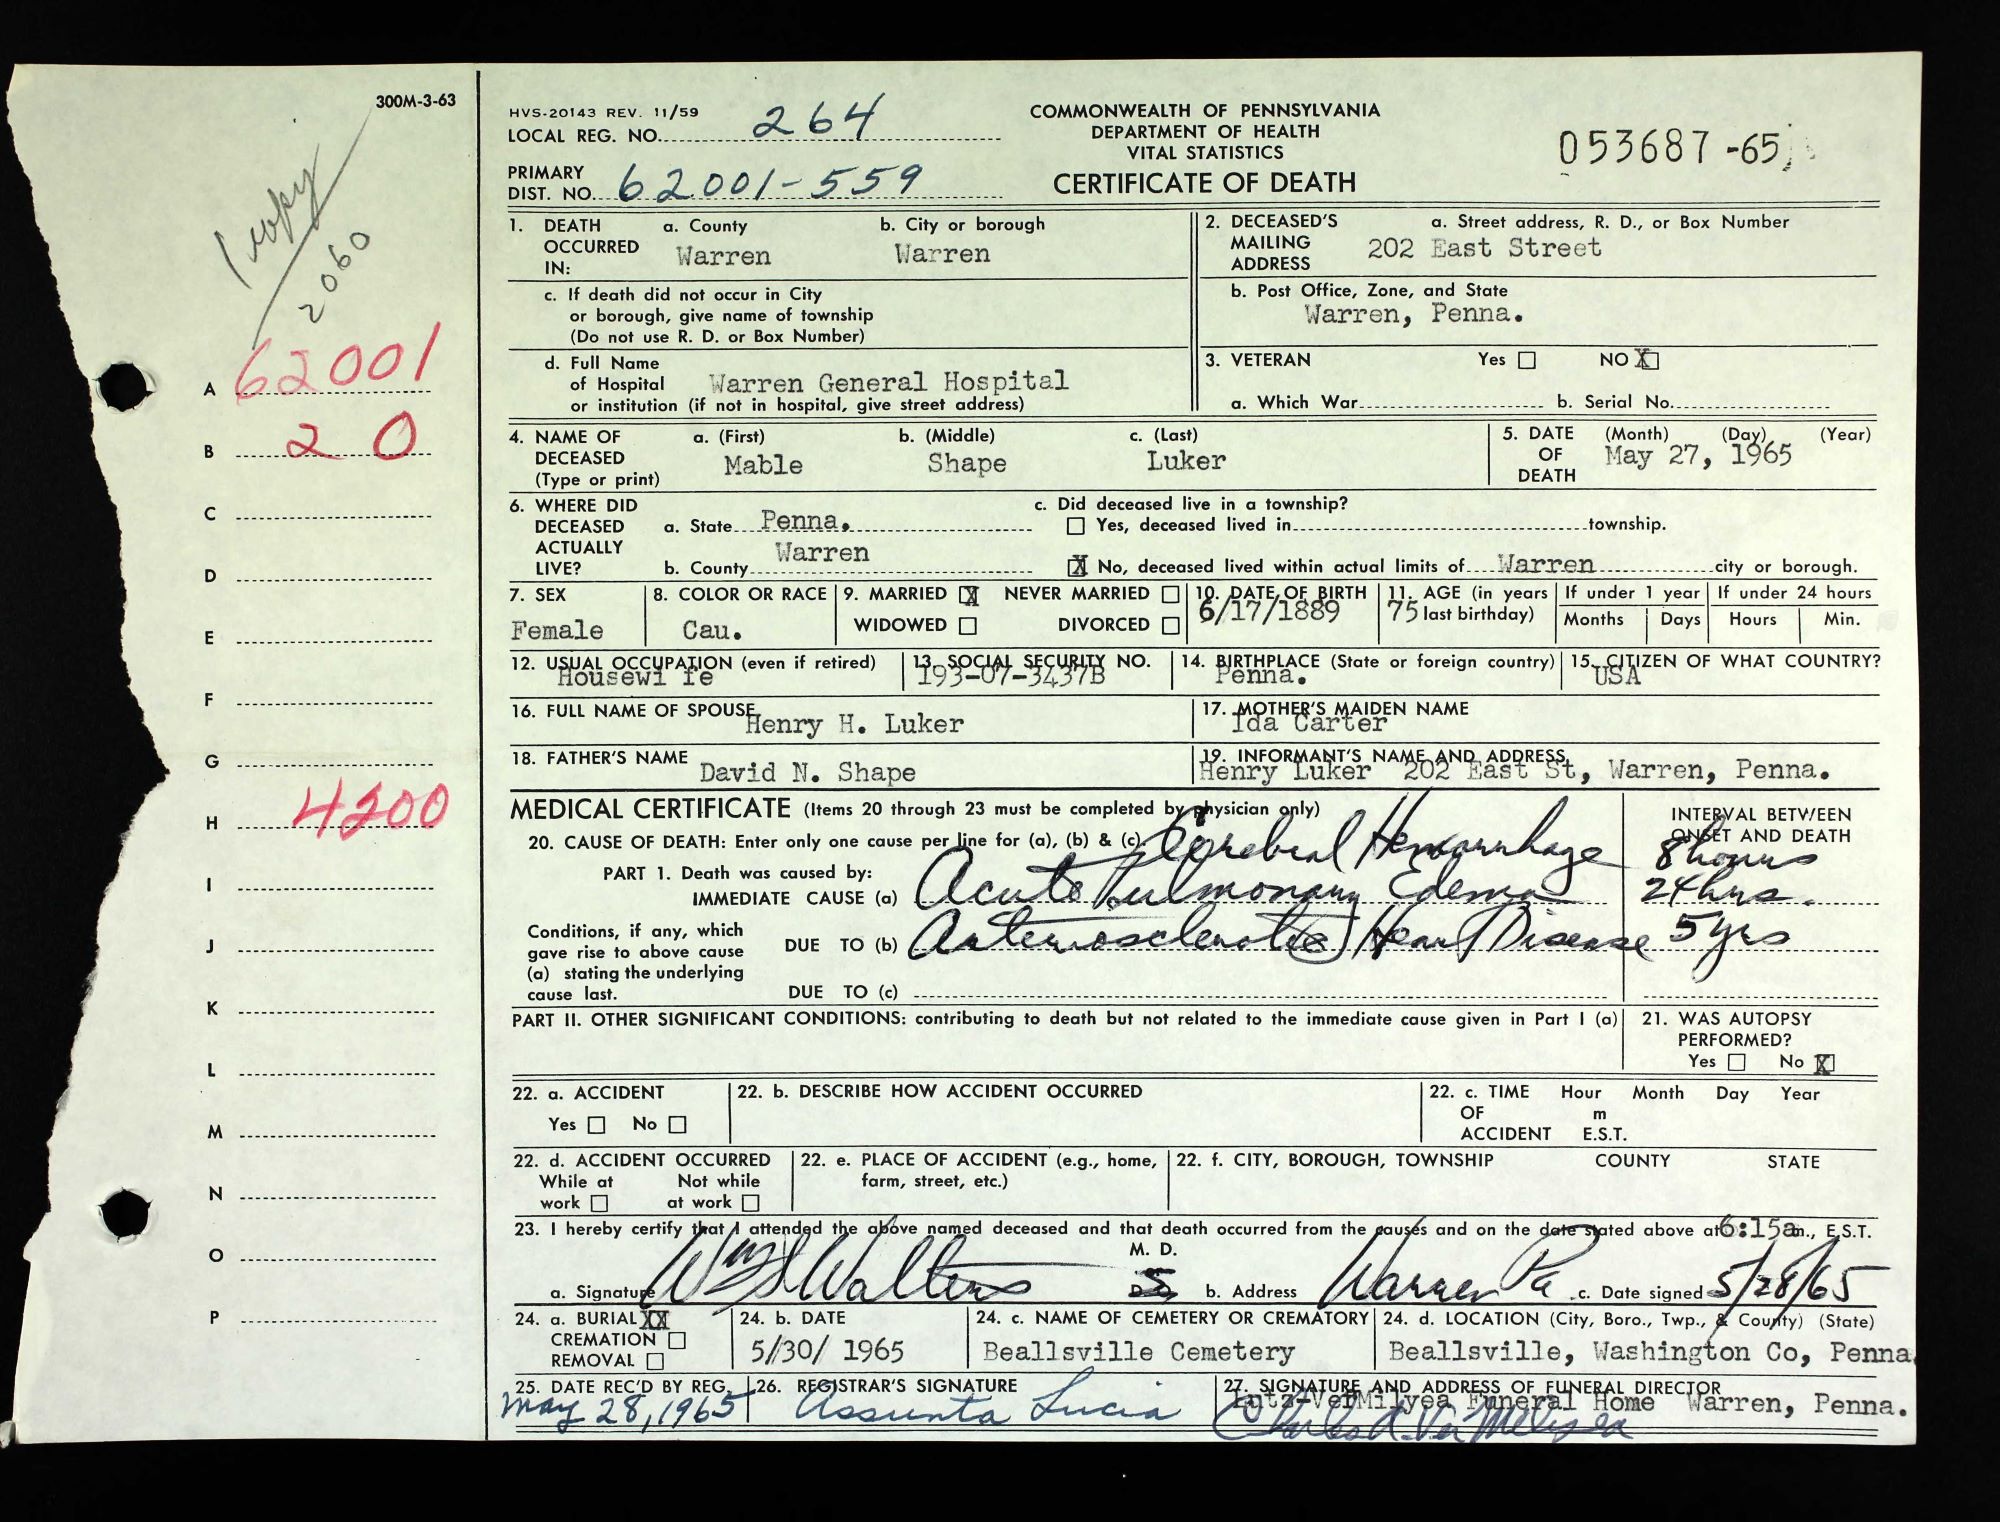 300M-3-63
1 copy
2060
A 62001
B 2 0
C
D
E
F
G
H 4200
I
J
K
L
M
N
O
P
HVS-20143 REV. 11/59
LOCAL REG. NO. 264
PRIMARY
DIST. NO. 62001-559
COMMONWEALTH OF PENNSYLVANIA
DEPARTMENT OF HEALTH
VITAL STATISTICS
CERTIFICATE OF DEATH
053687-65
1. DEATH OCCURRED IN: a. County b. City or borough
Warren Warren
c. If death did not occur in City
or borough, give name of township
(Do not use R. D. or Box Number)
d. Full Name
of Hospital Warren General Hospital
or institution (if not in hospital, give street address)
2. DECEASED'S MAILING ADDRESS a. Street address, R. D., or Box Number
202 East Street
b. Post Office, Zone, and State
Warren, Penna.
3. VETERAN Yes NO X
a. Which War b. Serial No.
4. NAME OF DECEASED (Type or print) a. (First) b. (Middle) c. (Last)
Mable Shape Luker
5. DATE OF DEATH (Month) (Day) (Year)
May 27, 1965
6. WHERE DID DECEASED ACTUALLY LIVE?
a. State Penna.
b. County Warren
c. Did deceased live in a township?
Yes, deceased lived in township.
X No, deceased lived within actual limits of Warren city or borough.
7. SEX
Female
8. COLOR OR RACE
Cau.
9. MARRIED X NEVER MARRIED
WIDOWED DIVORCED
10. DATE OF BIRTH
6/17/1889
11. AGE (in years
75 last birthday)
If under 1 year
Months Days
If under 24 hours
Hours Min.
12. USUAL OCCUPATION (even if retired)
Housewife
13. SOCIAL SECURITY NO.
193-07-3437B
14. BIRTHPLACE (State or foreign country)
Penna.
15. CITIZEN OF WHAT COUNTRY?
USA
16. FULL NAME OF SPOUSE
Henry H. Luker
17. MOTHER'S MAIDEN NAME
Ida Carter
18. FATHER'S NAME
David N. Shape
19. INFORMANT'S NAME AND ADDRESS
Henry Luker 202 East St, Warren, Penna.
MEDICAL CERTIFICATE (Items 20 through 23 must be completed by physician only)
INTERVAL BETWEEN
ONSET AND DEATH
20. CAUSE OF DEATH: Enter only one cause per line for (a), (b) & (c) Cerebral Hemorrhage 8 hours
PART 1. Death was caused by:
IMMEDIATE CAUSE (a) Acute Pulmonary Edema 24 hrs.
Conditions, if any, which
gave rise to above cause
(a) stating the underlying
cause last.
DUE TO (b) Arteriosclerotic Heart Disease 5 yrs
DUE TO (c)
PART II. OTHER SIGNIFICANT CONDITIONS: contributing to death but not related to the immediate cause given in Part I (a)
21. WAS AUTOPSY
PERFORMED?
Yes No X
22. a. ACCIDENT
Yes No
22. b. DESCRIBE HOW ACCIDENT OCCURRED
22. c. TIME OF ACCIDENT Hour Month Day Year
m
E.S.T.
22. d. ACCIDENT OCCURRED
While at work Not while at work
22. e. PLACE OF ACCIDENT (e.g., home,
farm, street, etc.)
22. f. CITY, BOROUGH, TOWNSHIP COUNTY STATE
23. I hereby certify that I attended the above named deceased and that death occurred from the causes and on the date stated above at 6:15a m., E.S.T.
M. D.
a. Signature Walters b. Address Warren Pa c. Date signed 5/28/65
24. a. BURIAL XX
CREMATION
REMOVAL
24. b. DATE
5/30/ 1965
24. c. NAME OF CEMETERY OR CREMATORY
Beallsville Cemetery
24. d. LOCATION (City, Boro., Twp., & County) (State)
Beallsville, Washington Co, Penna.
25. DATE REC'D BY REG.
May 28, 1965
26. REGISTRAR'S SIGNATURE
Assunta Lucia
27. SIGNATURE AND ADDRESS OF FUNERAL DIRECTOR
Lutz-VerMilyea Funeral Home Warren, Penna.
Charles A. VerMilyea